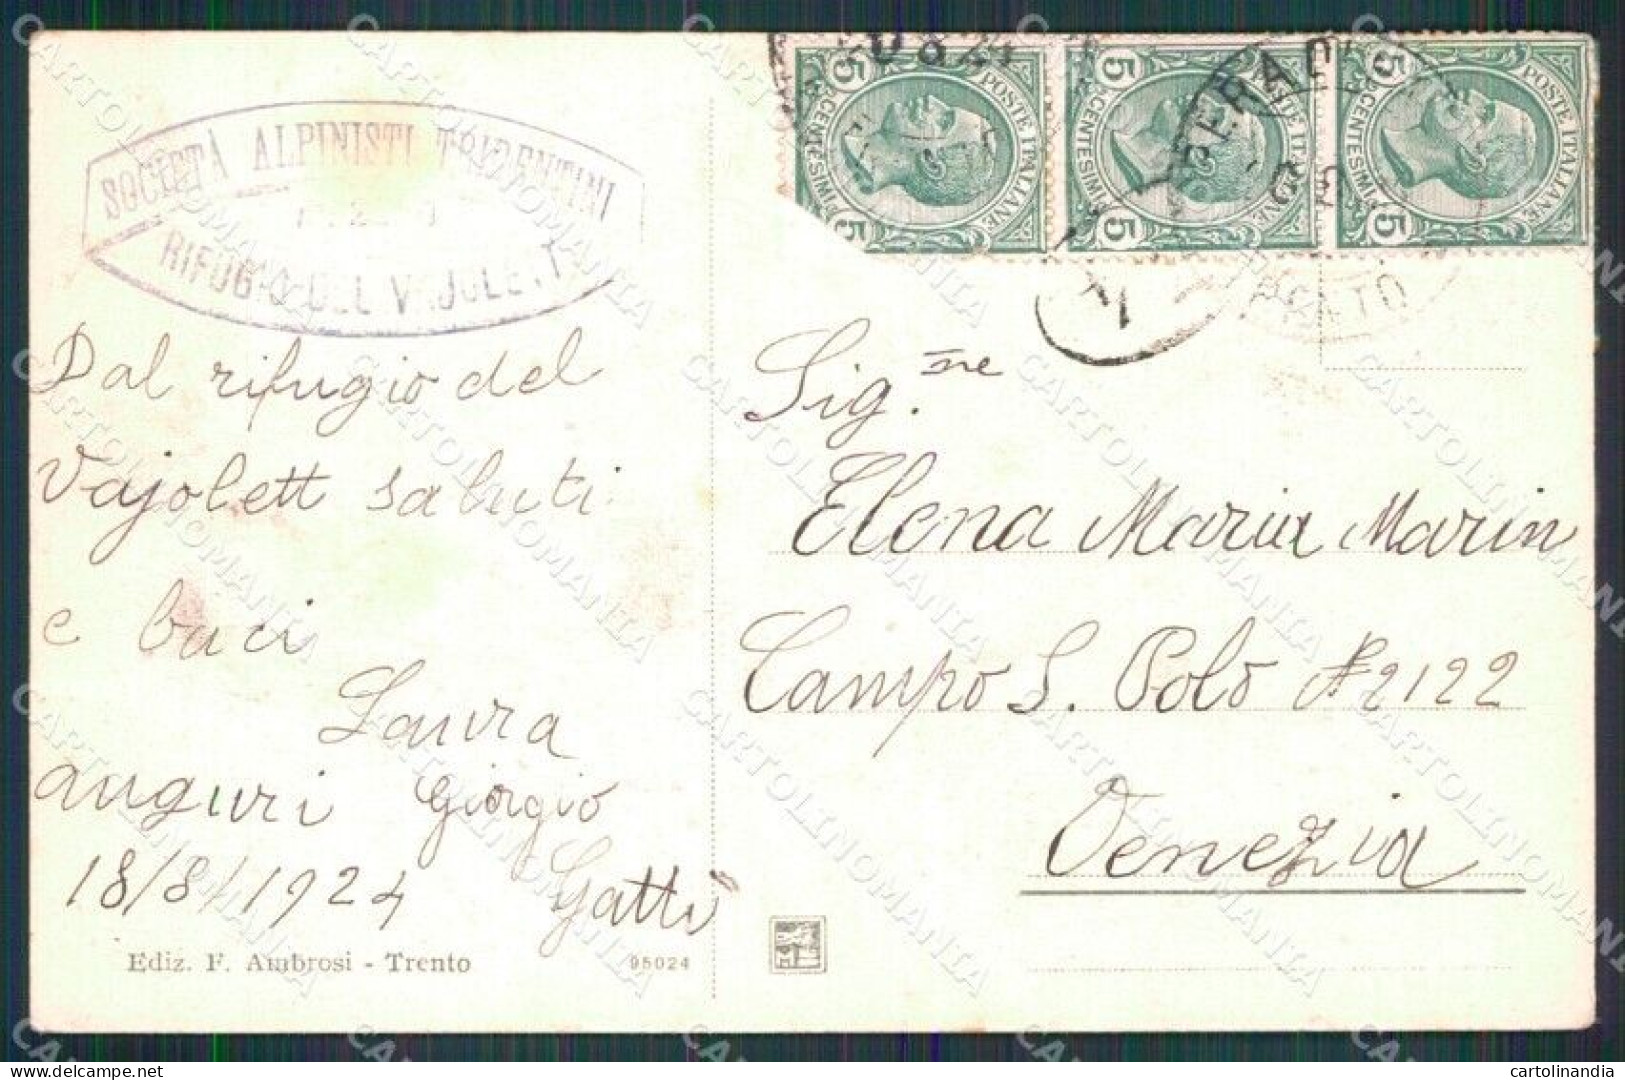 SOCIETÀ ALPINISTI TRIDENTINI
RIFUGIO DEL VAJOLET
5 CENTESIMI 5 POSTE ITALIANE
5 CENTESIMI 5 POSTE ITALIANE
5 CENTESIMI 5 POSTE ITALIANE
PERA DI
Dal rifugio del
Vajolett saluti
e baci
Laura
auguri Giorgio
18/8/1924 Gatti
Sig.ne
Elena Maria Marin
Campo S. Polo 2122
Venezia
Ediz. F. Ambrosi - Trento
95024
CARTOLINOMANIA
cartolinandia
delcampe.net